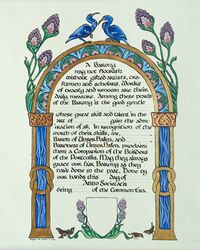 A Barony
may not flourish
without gifted artists, craftsmen
and scholars. Works
of beauty and wisdom are their
daily measure. Among these pearls
of the Barony is the good gentle
whose great skill and talent in the
art of gain the adm
iration of all. In recognition of the
worth of their skills, we,
Baron of
Baroness of proclaim
them a Companion of the
of the Portcullis. May they always
grace our fair Barony as they
have done in the past. Done by
our hands this day of
Anno Societatis
being of the Common Era.